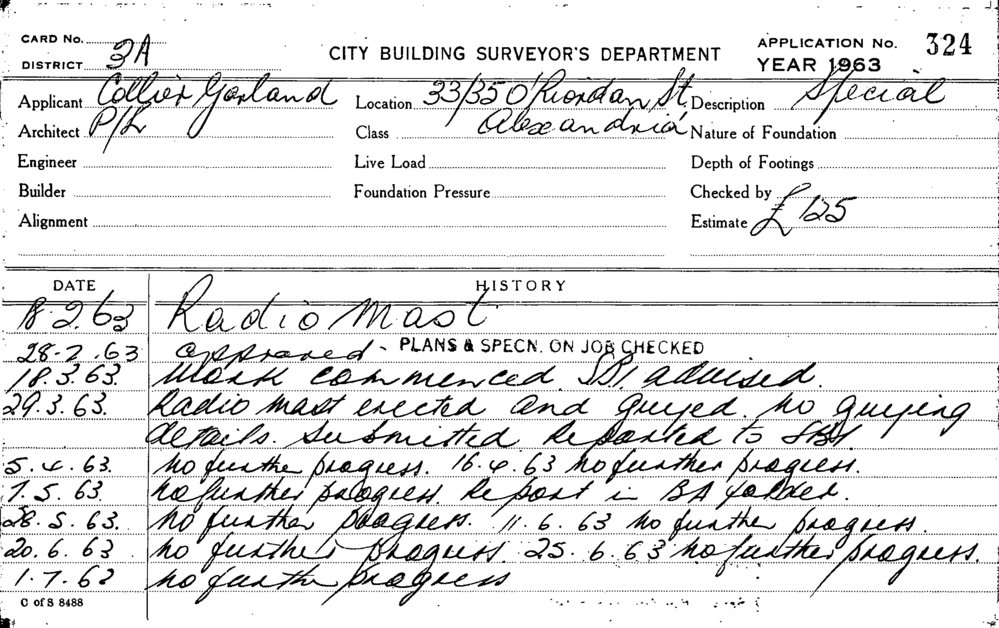 CARD No.
DISTRICT 3A
CITY BUILDING SURVEYOR'S DEPARTMENT
APPLICATION No. 324
YEAR 1963
Applicant Collier Garland Location 33/350 O'Riordan St Description Special
Architect P/L Class Alexandria Nature of Foundation
Engineer Live Load Depth of Footings
Builder Foundation Pressure Checked by
Alignment Estimate £125
DATE HISTORY
18.2.63 Radio Mast
28.2.63 approved - PLANS & SPECN. ON JOB CHECKED
18.3.63. Work commenced. SBI advised.
29.3.63. Radio mast erected and guyed. No guying
details. submitted Reported to SBI
5.4.63. No further progress. 16.4.63 No further progress.
7.5.63. No further progress. Report in BA folder.
28.5.63. No further progress. 11.6.63 No further progress.
20.6.63 No further progress 25.6.63 No further progress.
1.7.63 No further progress
C of S 8488